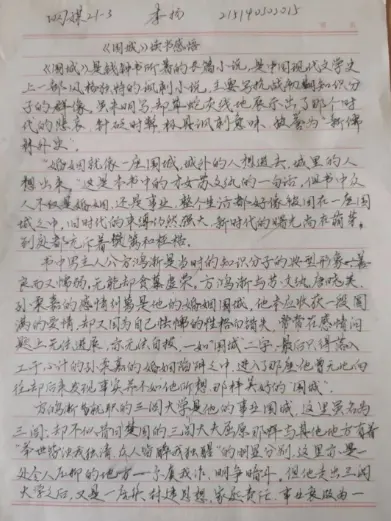 网媒21-3 李杨 215140303015
《围城》读书感悟
《围城》是钱钟书所著的长篇小说，是中国现代文学史
上一部风格独特的讽刺小说，主要写抗战初期知识分
子的群像。虽未明写，却草蛇灰线地展示出了那个时
代的悲哀，针砭时弊，极具讽刺意味，被誉为“新儒
林外史”。
“婚姻就像一座围城，城外的人想进去，城里的人
想出来。”这是本书中的才女苏文纨的一句话，但书中众
人不仅是婚姻，还是事业，整个生活都好像被困在一座围
城之中，旧时代的束缚仍然强大，新时代的曙光尚在萌芽，
到处都充斥着樊篱和桎梏。
书中男主人公方鸿渐是当时的知识分子的典型形象，善
良而又懦弱，无能却贪慕虚荣，方鸿渐与苏文纨、唐晓芙、
孙柔嘉的感情纠葛是他的婚姻围城，他本应收获一段圆
满的爱情，却又因为自己怯懦的性格而错失，常常在感情问
题上无法进展，亦无法自拔，一如“围城”二字，最后只得落入
工于心计的孙柔嘉的婚姻陷阱之中，进入了那座他曾无比向
往却后来发现事实并不如他所想那样美好的“围城”。
方鸿渐当初就职的三闾大学是他的事业围城，这里虽名为
三闾，却不似昔日楚国的三闾大夫屈原那样与其他地方有着
“举世皆浊我独清，众人皆醉我独醒”的明显分别，这里亦是
处个人压抑的地方——尔虞我诈，明争暗斗。但他走出三闾
大学之后，又是一座杂糅进思想、家庭责任、事业衰败为一